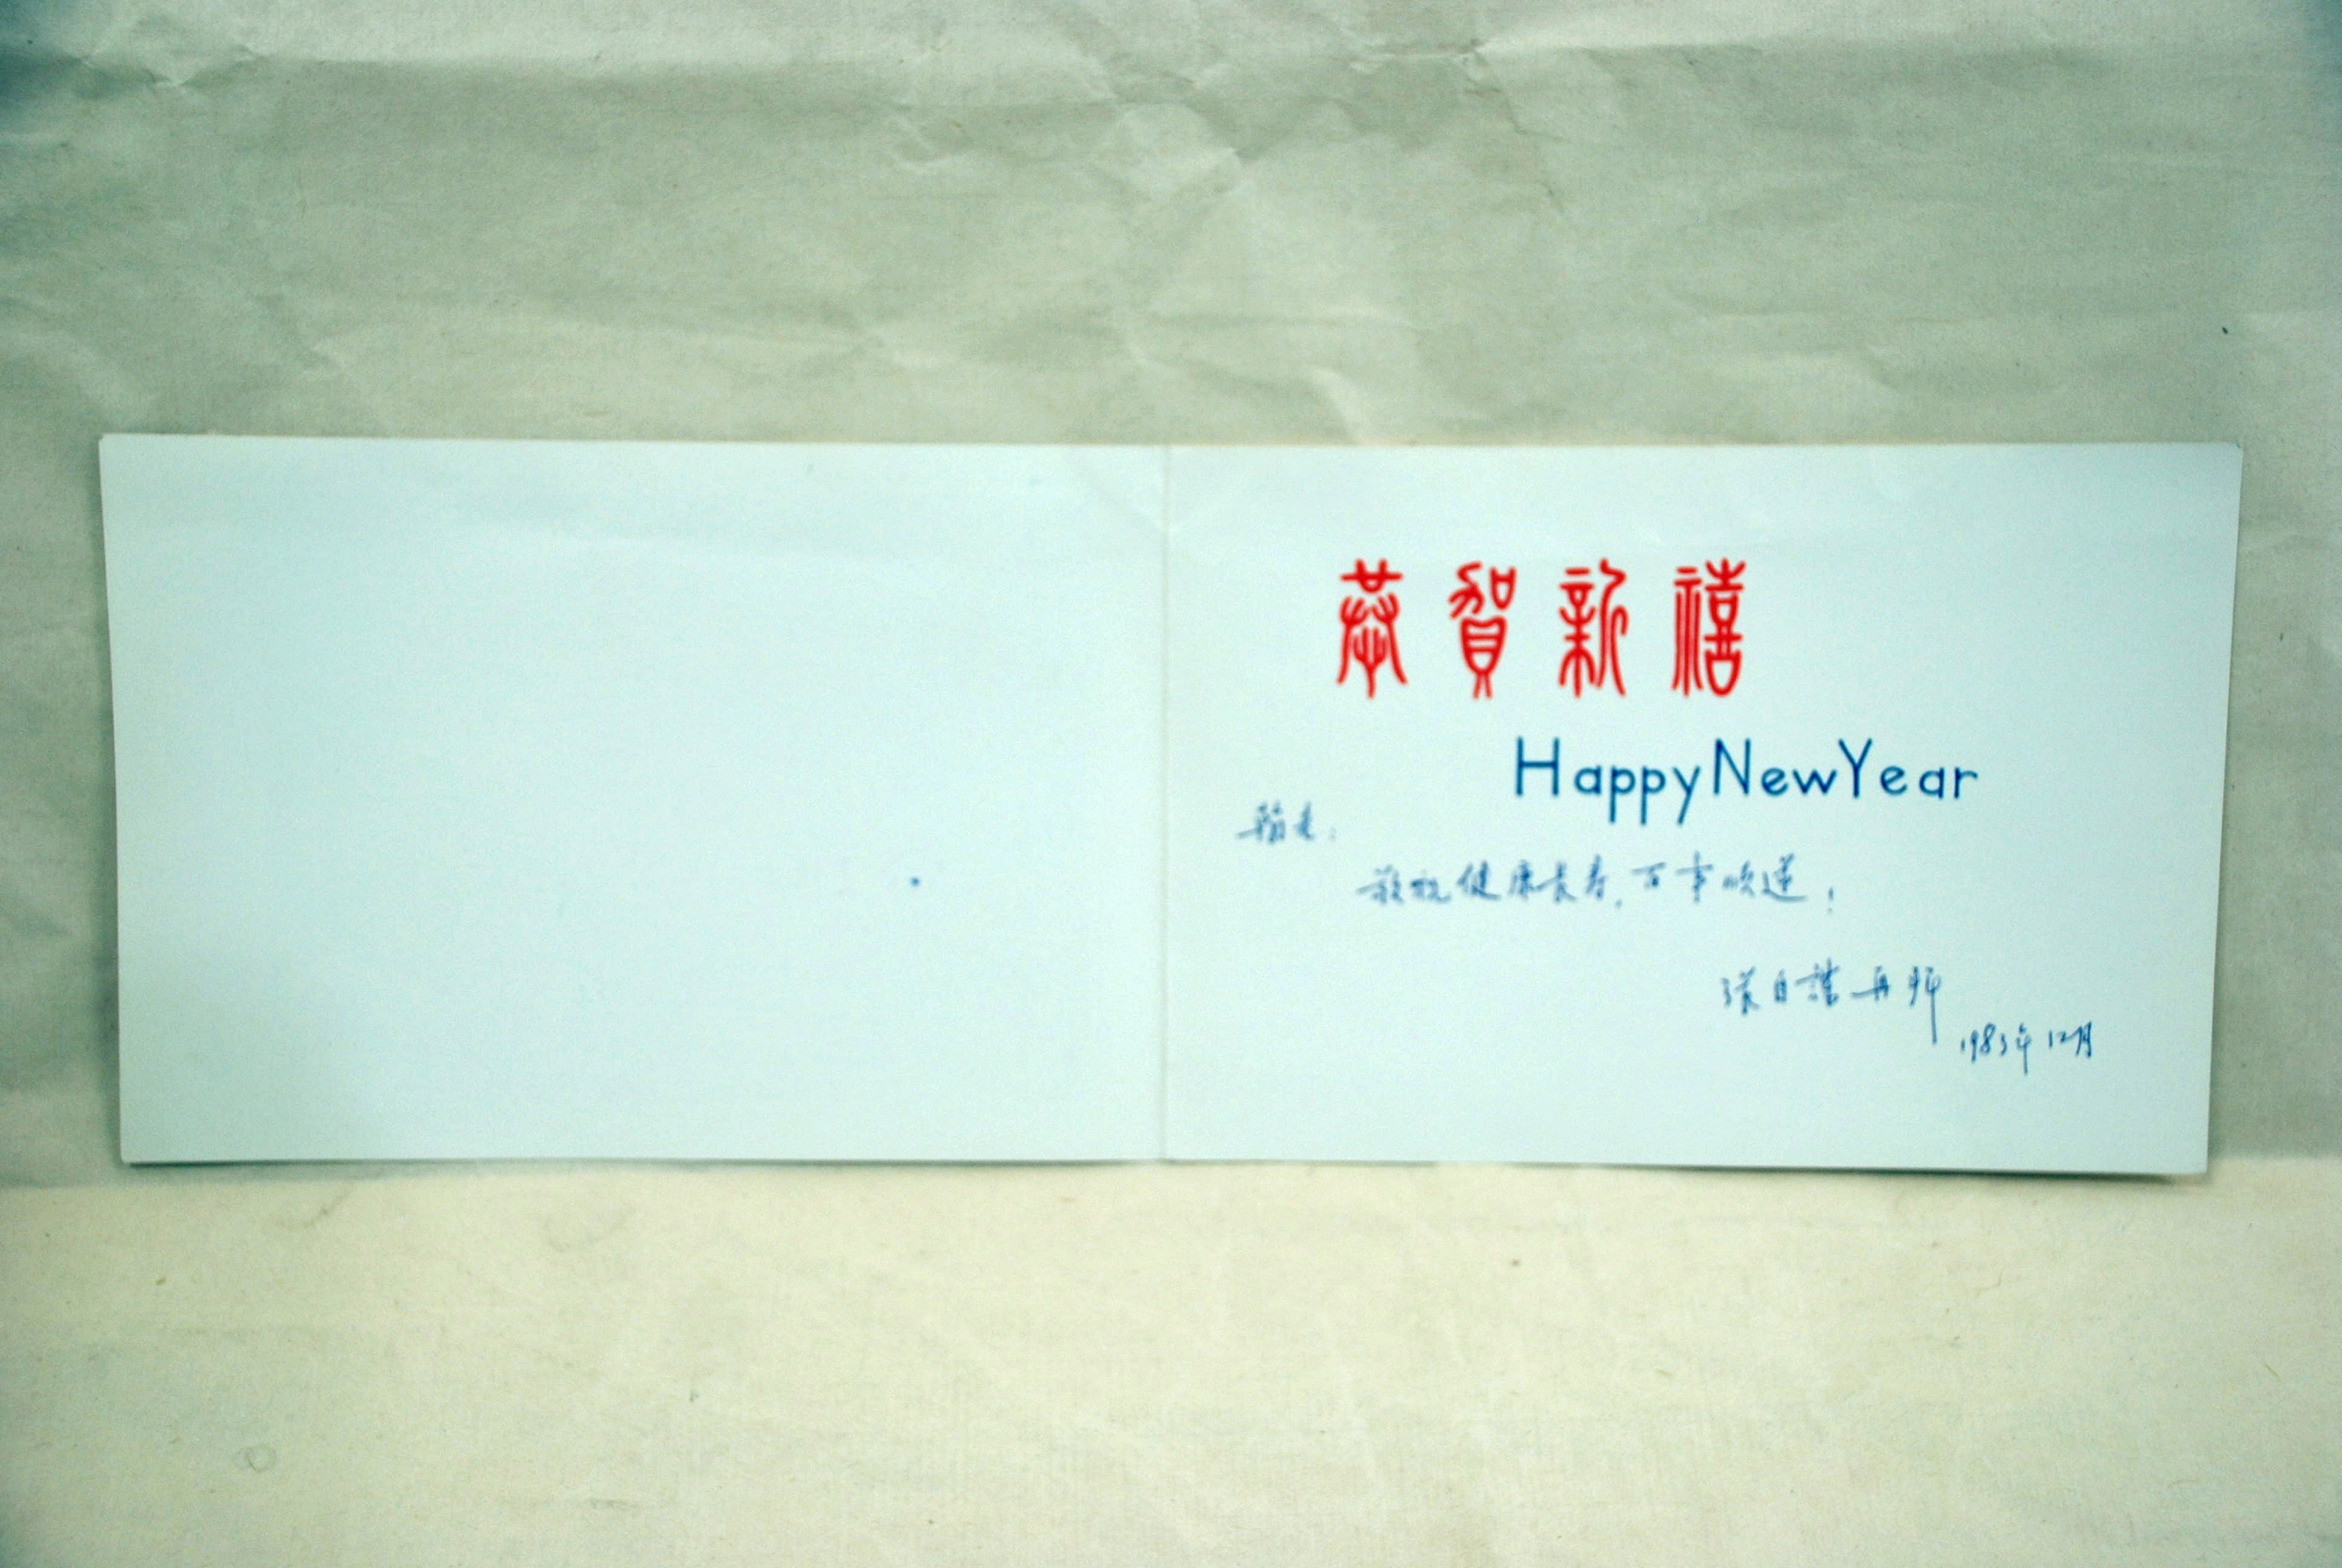 恭賀新禧
Happy New Year
翰老:
敬祝健康長寿,百事順遂!
張自謹再拜
1983年12月